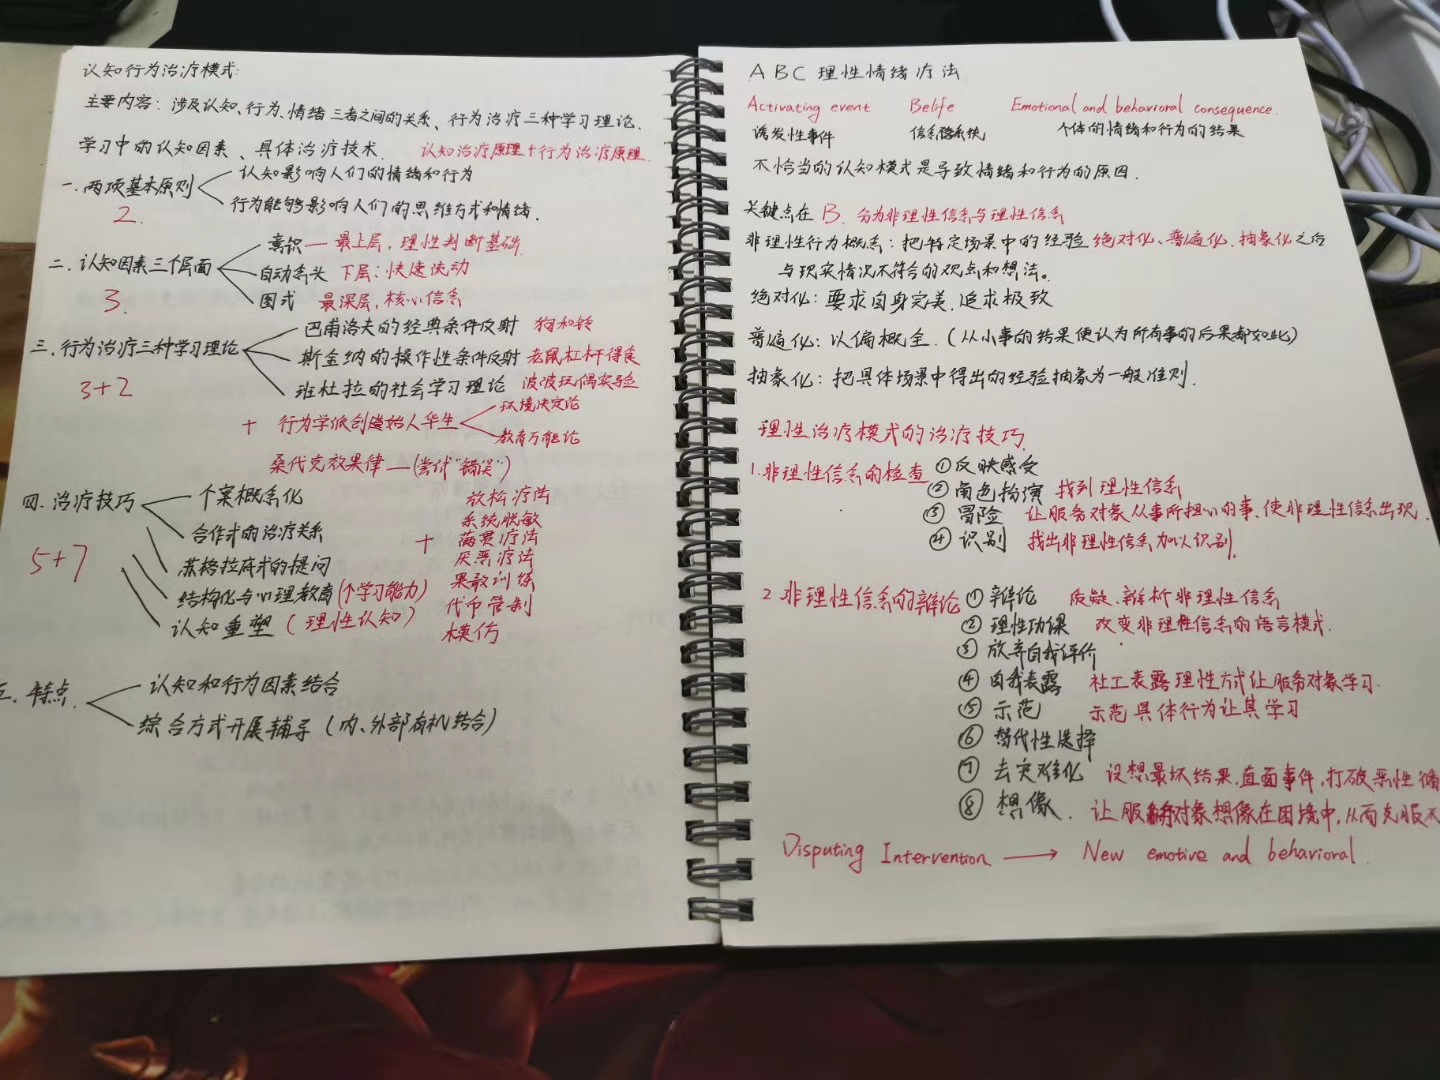 认知行为治疗模式:
主要内容：涉及认知、行为、情绪三者之间的关系、行为治疗三种学习理论、
学习中的认知因素、具体治疗技术. 认知治疗原理+行为治疗原理.
一.两项基本原则
2.
认知影响人们的情绪和行为
行为能够影响人们的思维方式和情绪.
二.认知因素三个层面
3.
意识—最上层,理性判断基础.
自动念头 下层:快速流动
图式 最深层,核心信念
三.行为治疗三种学习理论
3+2
巴甫洛夫的经典条件反射 狗和铃
斯金纳的操作性条件反射 老鼠杠杆得食
班杜拉的社会学习理论 波波玩偶实验
+ 行为学派创始人华生
环境决定论
教育万能论
桑代克效果律—(尝试“错误”)
四.治疗技巧
5+7
个案概念化
合作式的治疗关系
苏格拉底式的提问
结构化与心理教育(个学习能力)
认知重塑(理性认知)
+
放松疗法
系统脱敏
满贯疗法
厌恶疗法
果敢训练
代币管制
模仿
特点.
认知和行为因素结合
综合方式开展辅导(内、外部有机结合)
ABC理性情绪疗法
Activating event Belife Emotional and behavioral consequence.
诱发性事件 信念系统 个体的情绪和行为的结果
不恰当的认知模式是导致情绪和行为的原因.
关键点在 B. 分为非理性信念与理性信念
非理性行为概念：把特定场景中的经验绝对化、普遍化、抽象化之后
与现实情况不符合的观点和想法。
绝对化：要求自身完美,追求极致
普遍化：以偏概全.(从小事的结果便认为所有事的后果都如此)
抽象化：把具体场景中得出的经验抽象为一般准则.
理性治疗模式的治疗技巧.
1.非理性信念的检查 ①反映感受
②角色扮演 找到理性信念
③冒险 让服务对象从事所担心的事、使非理性信念出现.
④识别 找出非理性信念加以识别.
2.非理性信念的辩论 ①辩论 质疑、辩析非理性信念
②理性功课 改变非理性信念的语言模式.
③放弃自我评价
④自我表露 社工表露理性方式让服务对象学习.
⑤示范 示范具体行为让其学习
⑥替代性选择
⑦去灾难化 设想最坏结果,直面事件,打破恶性循
⑧想像. 让服务对象想像在困境中,从而克服不
Disputing Intervention → New emotive and behavioral.